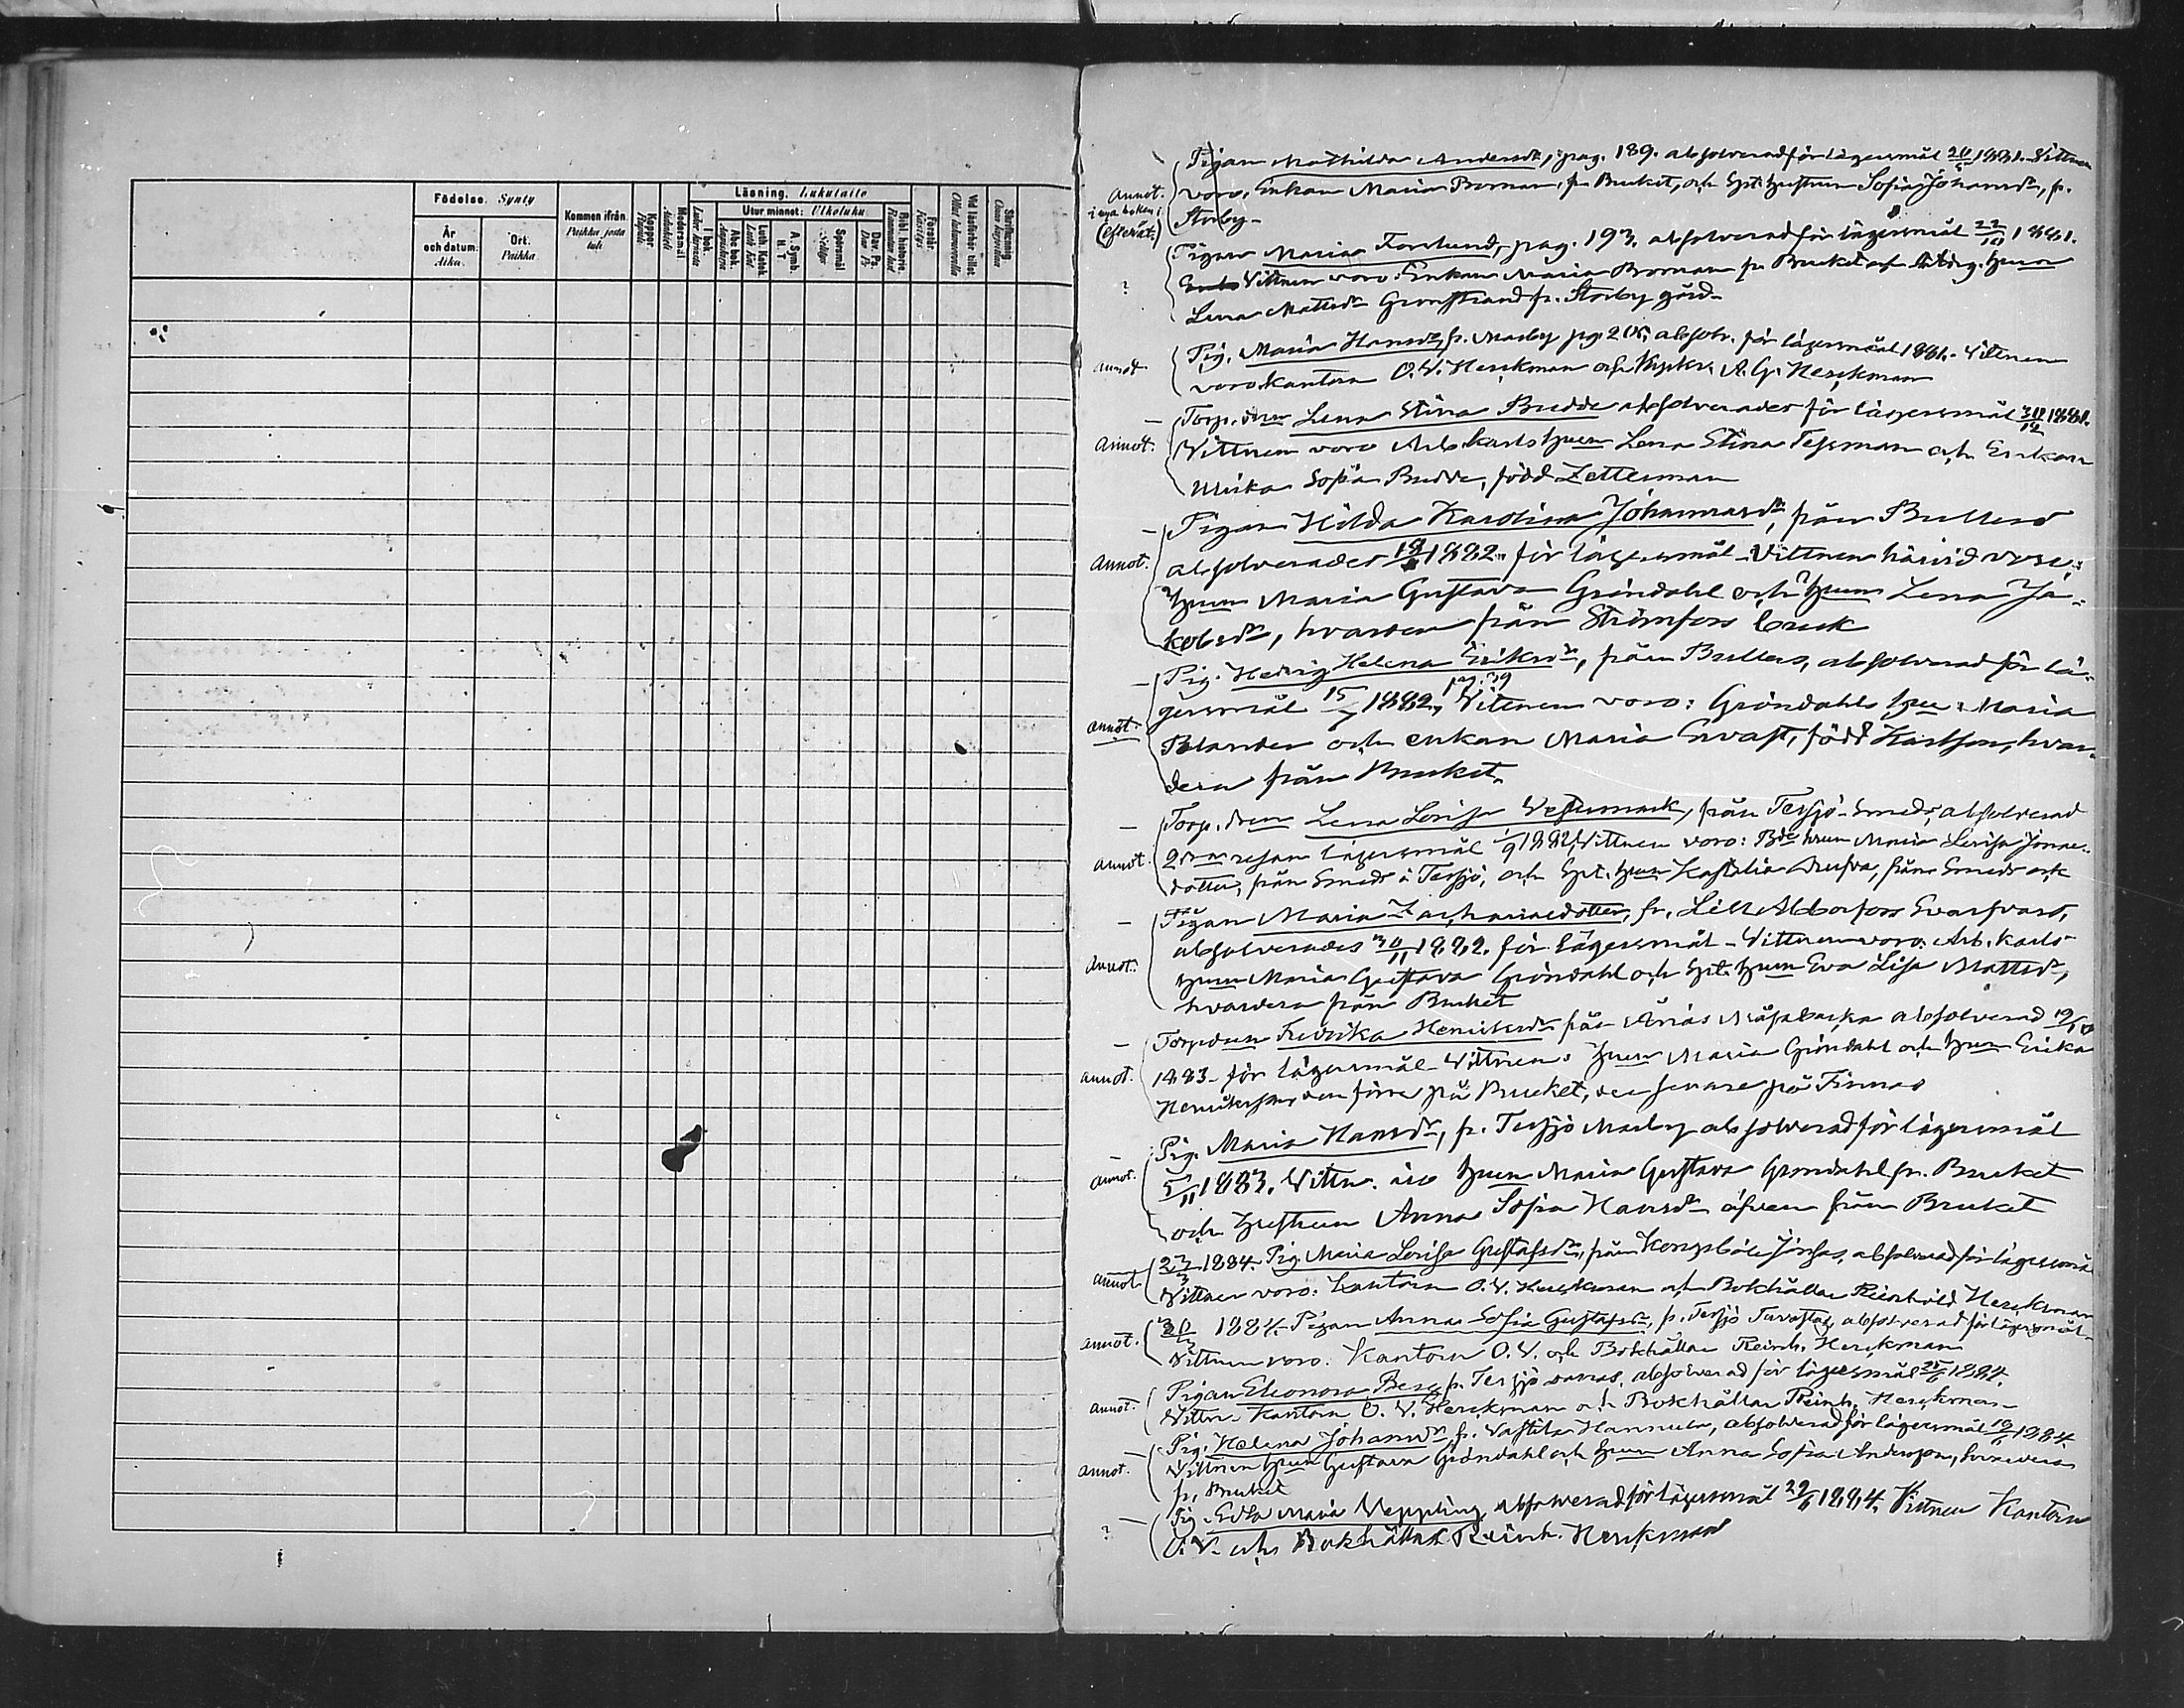 Födelse. Synty
År och datum. Aika.
Ort. Paikka
Kommen ifrån. Paikka josta tuli.
Koppor Rupuli
Modersmål
Läsning. Lukutaito
I bok.
Utur minnet: Ulkoluku.
Abc bok.
Luth. Katek.
A. Symb. H. T
Spörsmål
Dav. Ps.
Bibl. historie.
Förstår. Käsitys
Vid läseförhör tillst.
Skriftkunnig
Annot. i nya boken (efteråt)
Pigan Mathilda Andersdr, pag. 189. absolverad för lägersmål 1881. Vittnen
voro, Enkan Maria Broman, fr. Bruket, och Spt. hustrun Sofia Johansdr, fr.
Storby-
?
Pigan Maria Forslund, pag. 193. absolverad för lägersmål 22/10 1881.
Vittnen voro: Enkan Maria Broman fr. Bruket och
Lena Mattsdr Grönstrand fr. Storby gård-
annot.
Pig. Maria Hansdr, fr. Marby pag absolv. för lägersmål 1881. Vittnen
voro kantorn O. V. Herckman och A. G. Herckman
Annot.
Torp. dren Lena Stina Budde absolverades för lägersmål 30/12 1881.
Vittnen voro Arb. karls hrun Lena Stina Tessman och Enkan
Ulrika Sofia Budde, född Zetterman
Annot.
Pigan Hilda Karolina Johannasdr, från Bullers
absolverades 1882 för lägersmål - Vittnen härvid voro:
hrun Maria Gustava Gröndahl och hrun Lena Ja-
kobsdr, hvardera från Strömfors bruk
annot.
Pig. Hedvig Helena Eriksdr, från Bullers, absolverad för lä-
pag. 39
gersmål 15/7 1882, Vittnen voro: Gröndahls hru: Maria
och enkan Maria född Karlsson, hvar-
dera från Bruket.
annot.
Torp. dren Lena Lovisa Westermark, från Tessjö Smeds, absolverad
2dra resan lägersmål 1882, Vittnen voro: Bde hrun Maria Lovisa Jonae-
dotter, från Smeds i Tessjö, och Spt. hrun från Smeds ock
Annot.
Pigan Maria Zachariaedotter, fr. Lill Abborfors
absolverades 30/11 1882. för lägersmål - Vittnen voro: Arb. karls
hrun Maria Gustava Gröndahl och Spt. hrun Eva Lisa Mattsdr,
hvardera från Bruket
annot.
Torpdren Fredrika Henriksdr från absolverad 19/10
1883. för lägersmål - Vittnen: hrun Maria Gröndahl och hrun Erika
Henriksson, den förre på Bruket, den senare på Finnas
annot.
Pig. Maria Hansdr, fr. Tessjö Marby absolverad för lägersmål
5/11 1883. Vittn. äro hrun Maria Gustava Gröndahl fr. Bruket
och hustrun Anna Sofia Hansdr äfven från Bruket
annot.
23/3 1884. Pig. Maria Lovisa Gustafsdr, från Kungsböle Jossas, absolverad för lägersmål
Vittnen voro: Kantorn O. V. Herckman och Bokhållar Reinhold Herckman
annot.
30/3 1884. Pigan Anna Sofia Gustafsdr, fr. Tessjö absolverad för lägersmål-
Vittnen voro: Kantorn O. V. och Bokhållar Reinh. Herckman
annot.
Pigan Eleonora Berg fr. Tessjö absolverad för lägersmål 1884.
Vittn. Kantorn O. V. Herckman och Bokhållar Reinh. Herckman-
annot.
Pig. Helena Johansdr fr. Vastila Hannula, absolverad för lägersmål 1884.
Vittnen hrun Gustava Gröndahl och hrun Anna Sofia Andersson, hvardera
fr. Bruket
?
Pig. Edla Maria Veppling absolverad för lägersmål 29/6 1884. Vittnen Kantorn
O. V. och Bokhållar Reinh. Herckman